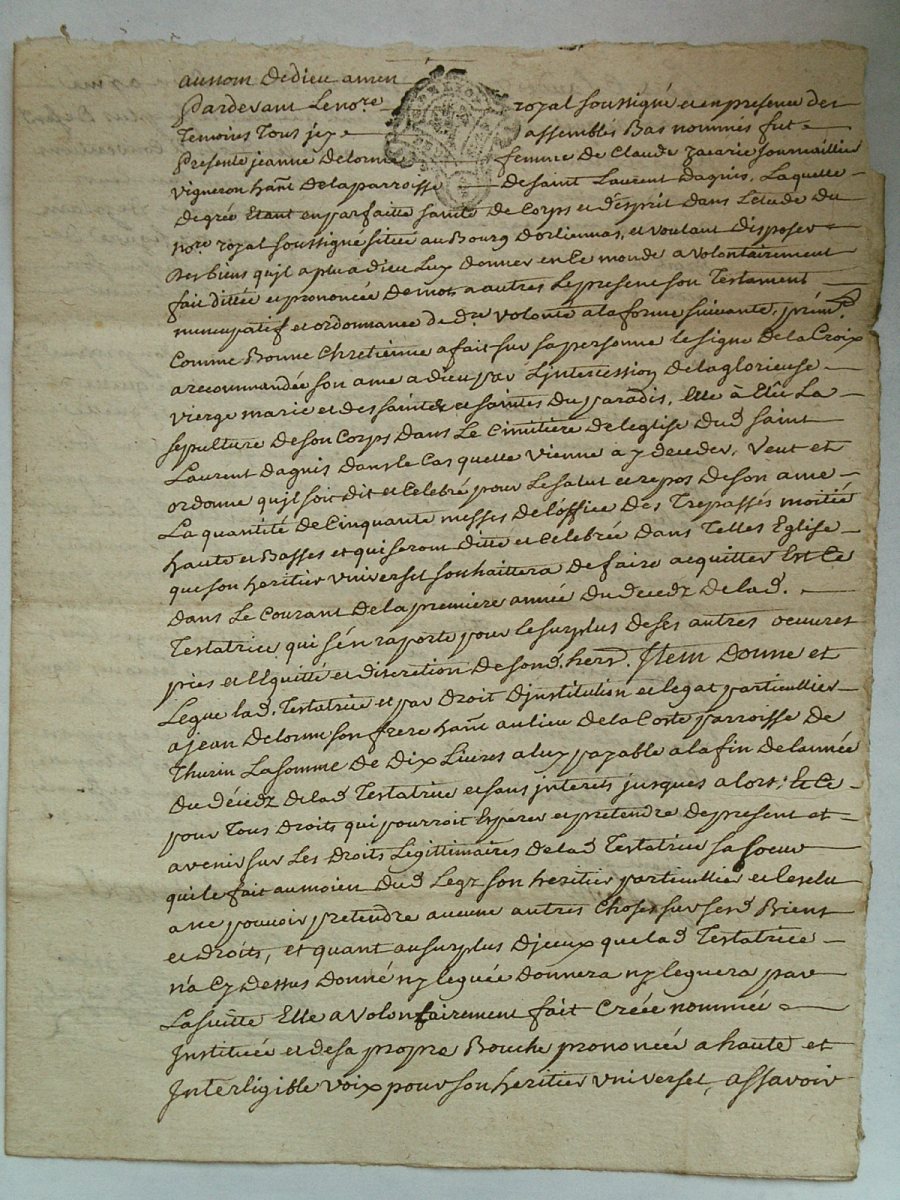 au nom de dieu amen
Pardevant Le nore royal soussigné et en presence des
Temoires Tous jey assemblés Bas nommés fut
Presente jeanne delorme femme de Claude Zacarie Journaillier
vigneron hant de la parroisse de saint Laurent dagnis, Laquelle
de gréé Etant en parfaitte santé de Corps et d'esprit dans L'etude du
nore royal soussigné située au Bourg dorliennas, et voulant disposer
des biens qu'jl a plu a dieu Luy donner en le monde a volontairement
fait dittée et prononcée de mots a autres Le present son Testament
nuncupatif et ordonnance de dre volonté a la forme suivante, prémt
Comme Bonne Chretienne a fait sur sa personne le signe de la Croix
a recommandée son ame a dieu par L'jntercession de la glorieuse
vierge marie et des saints et saintes du paradis, Elle à Elû La
sepulture de son Corps dans Le Cimitière de l'eglise dud saint
Laurent dagnis dans le Cas quelle vienne a y deceder, Veut et
ordonne qu'jl soit dit et Celebré pour Le salut et repos de son ame
La quantité de Cinquante messes de l'office des Trepassés moitié
haute et Basses et qui seront ditte et Celebrée dans Telles Eglise
que son heritier vniversel souhaittera de faire acquitter Est Ce
dans Le Courant de la premiere année du decedz de lad.
Testatrice qui s'en raporte pour le surplus de ses autres oeuvres
pies et l'Equitté et discretion de sond. herd. Jtem donne et
Legue lad. Testatrice et par droit d'jnstitution et legat particullier
a jean delorme son frere hant au lieu de la Coste parroisse de
Thurin La somme de dix Livres a luy payable a la fin de l'année
du décedz de lad Testatrice et sans jnterets jusques alors; Et Ce
pour Tous droits qui pourroit Esperer et pretendre de present et
avenir sur Les droits Legittimaires de lad Testatrice sa soeur
qui le fait au moien dud Legz son heritier particullier et l'exclu
a ne pouvoir pretendre aucune autres Choses sur sesd Biens
et droits, et quant au surplus d'jceux que lad Testatrice
n'a Cy dessus donné ny leguée donnera ny leguera par
La suitte Elle a volontairement fait Créée nommée
Jnstituée et de sa propre Bouche prononcée a haute et
Jnterligible voix pour son heritier vniversel, assavoir